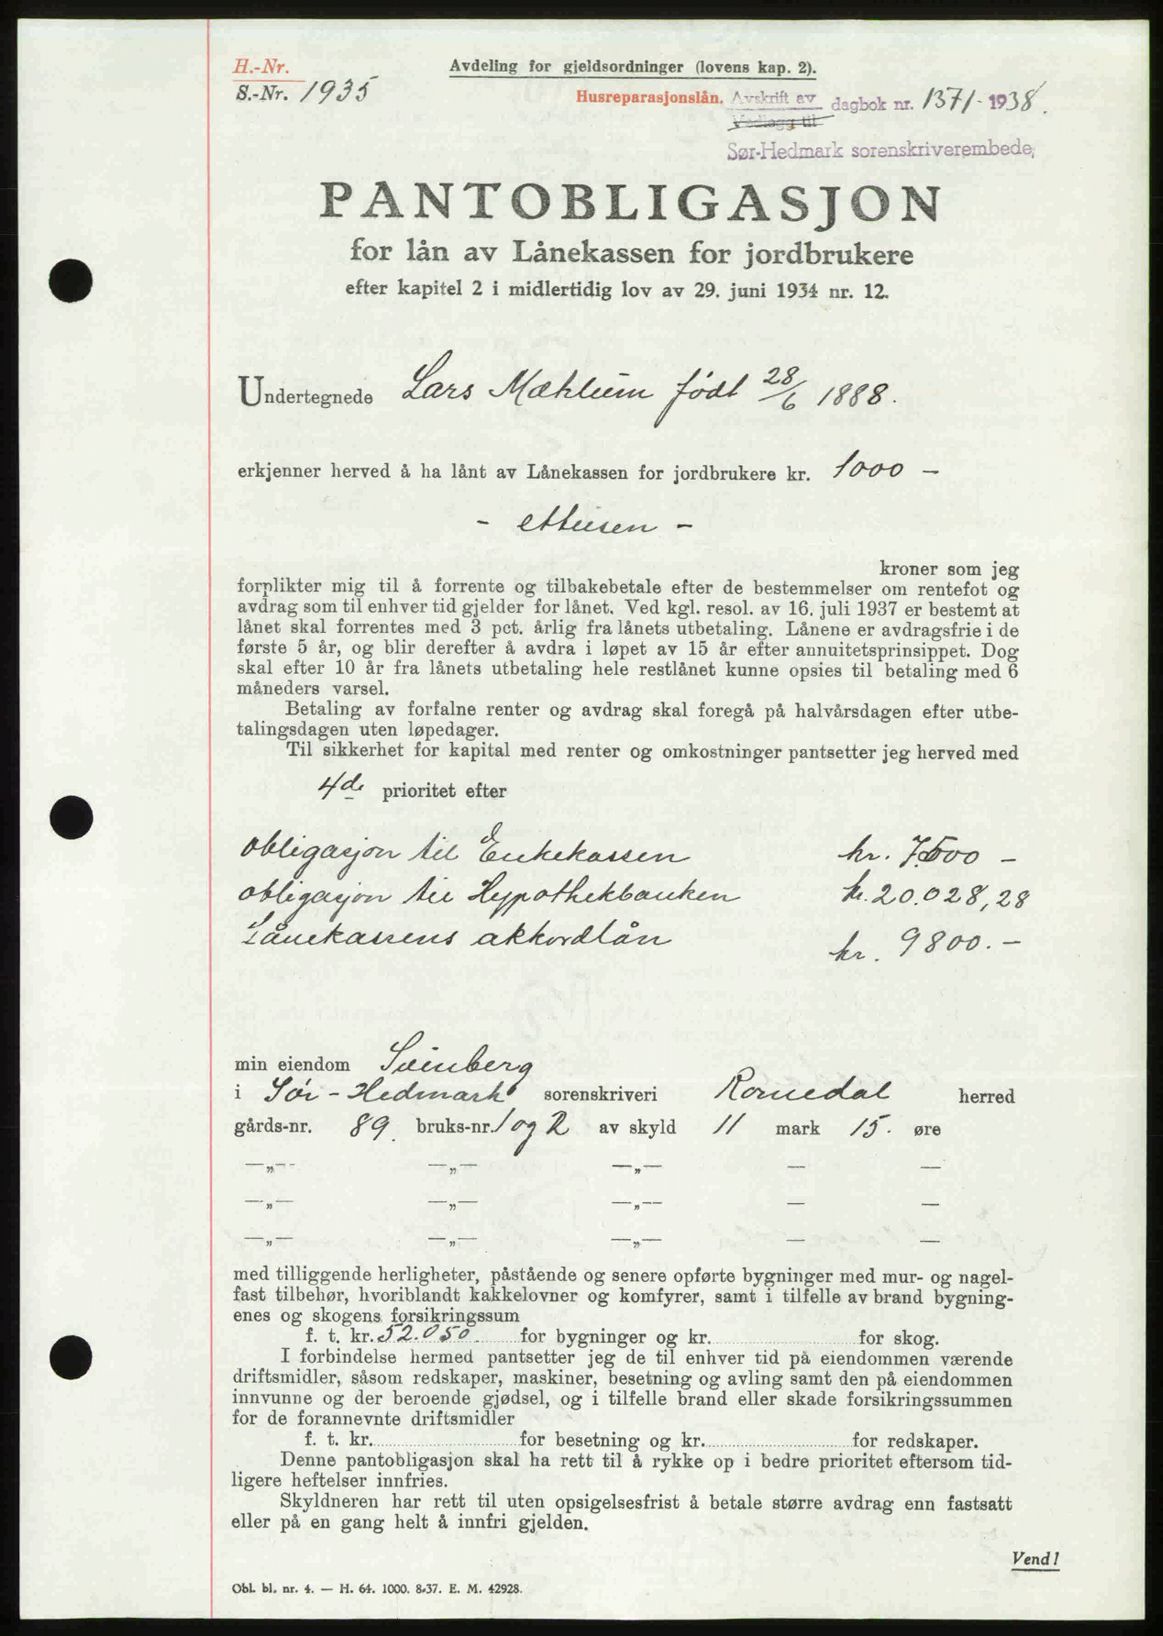 H.-Nr.
Avdeling for gjeldsordninger (lovens kap. 2).
S.-Nr. 1935
Husreparasjonslån. Avskrift av dagbok nr. 1371-1938.
Vedlegg til
Sør-Hedmark sorenskriverembede,
PANTOBLIGASJON
for lån av Lånekassen for jordbrukere
efter kapitel 2 i midlertidig lov av 29. juni 1934 nr. 12.
Undertegnede Lars Mæhlum født 28/6 1888.
erkjenner herved å ha lånt av Lånekassen for jordbrukere kr. 1000 —
- ettusen -
kroner som jeg
forplikter mig til å forrente og tilbakebetale efter de bestemmelser om rentefot og
avdrag som til enhver tid gjelder for lånet. Ved kgl. resol. av 16. juli 1937 er bestemt at
lånet skal forrentes med 3 pct. årlig fra lånets utbetaling. Lånene er avdragsfrie i de
første 5 år, og blir derefter å avdra i løpet av 15 år efter annuitetsprinsippet. Dog
skal efter 10 år fra lånets utbetaling hele restlånet kunne opsies til betaling med 6
måneders varsel.
Betaling av forfalne renter og avdrag skal foregå på halvårsdagen efter utbe-
talingsdagen uten løpedager.
Til sikkerhet for kapital med renter og omkostninger pantsetter jeg herved med
4de prioritet efter
obligasjon til Enkekassen kr. 7500 —
obligasjon til Hypothekbanken kr. 20.028,28
Lånekassens akkordlån kr. 9800. —
min eiendom Sveinberg
i Sør-Hedmark sorenskriveri Romedal herred
gårds-nr. 89. bruks-nr. 1 og 2 av skyld 11 mark 15. øre
—„— —„— —„— — —
—„— —„— —„— — —
—„— —„— —„— — —
med tilliggende herligheter, påstående og senere opførte bygninger med mur- og nagel-
fast tilbehør, hvoriblandt kakkelovner og komfyrer, samt i tilfelle av brand bygning-
enes og skogens forsikringssum
f. t. kr. 52.050. for bygninger og kr. for skog.
I forbindelse hermed pantsetter jeg de til enhver tid på eiendommen værende
driftsmidler, såsom redskaper, maskiner, besetning og avling samt den på eiendommen
innvunne og der beroende gjødsel, og i tilfelle brand eller skade forsikringssummen
for de forannevnte driftsmidler
f. t. kr. for besetning og kr. for redskaper.
Denne pantobligasjon skal ha rett til å rykke op i bedre prioritet eftersom tid-
ligere heftelser innfries.
Skyldneren har rett til uten opsigelsesfrist å betale større avdrag enn fastsatt
eller på en gang helt å innfri gjelden.
Vend!
Obl. bl. nr. 4. — H. 64. 1000. 8-37. E. M. 42928.